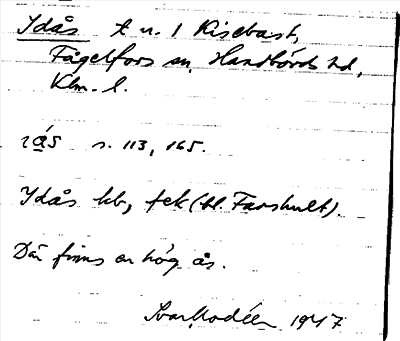 Idås t n. 1 Kisebast,
Fågelfors sn, Handbörds hd,
Klm. l.
s. 113, 165.
Idås kb, fek (bl. Farshult).
Där finns en hög ås.
Ivar Modéer 1947